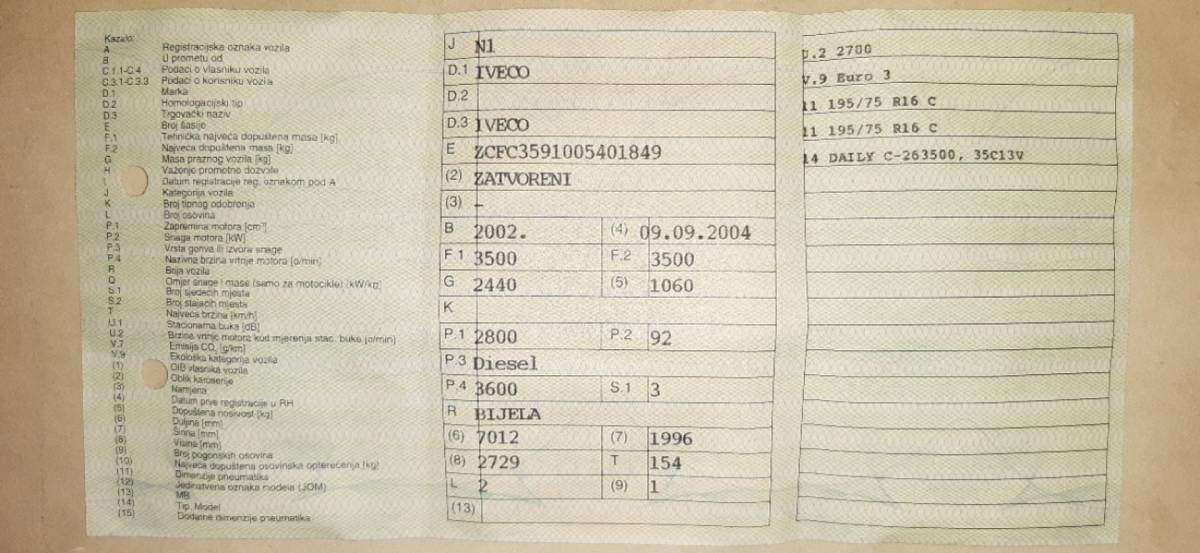 Kazalo:
A Registracijska oznaka vozila
B U prometu od
C.1.1-C.4 Podaci o vlasniku vozila
C.3.1-C.3.3 Podaci o korisniku vozila
D.1 Marka
D.2 Homologacijski tip
D.3 Trgovački naziv
E Broj šasije
F.1 Tehnička najveća dopuštena masa [kg]
F.2 Najveća dopuštena masa [kg]
G Masa praznog vozila [kg]
H Važenje prometne dozvole
I Datum registracije reg. oznakom pod A
J Kategorija vozila
K Broj tipnog odobrenja
L Broj osovina
P.1 Zapremina motora [cm³]
P.2 Snaga motora [kW]
P.3 Vrsta goriva ili izvora snage
P.4 Nazivna brzina vrtnje motora [o/min]
R Boja vozila
Q Omjer snage i mase (samo za motocikle) [kW/kg]
S.1 Broj sjedećih mjesta
S.2 Broj stajaćih mjesta
T Najveća brzina [km/h]
U.1 Stacionarna buka [dB]
U.2 Brzina vrtnje motora kod mjerenja stac. buke [o/min]
V.7 Emisija CO₂ [g/km]
V.9 Ekološka kategorija vozila
(1) OIB vlasnika vozila
(2) Oblik karoserije
(3) Namjena
(4) Datum prve registracije u RH
(5) Dopuštena nosivost [kg]
(6) Duljina [mm]
(7) Širina [mm]
(8) Visina [mm]
(9) Broj pogonskih osovina
(10) Najveća dopuštena osovinska opterećenja [kg]
(11) Dimenzije pneumatika
(12) Jedinstvena oznaka modela (JOM)
(13) MB
(14) Tip, Model
(15) Dodatne dimenzije pneumatika
J N1
D.1 IVECO
D.2
D.3 IVECO
E ZCFC3591005401849
(2) ZATVORENI
(3) –
B 2002. (4) 09.09.2004
F.1 3500 F.2 3500
G 2440 (5) 1060
K
P.1 2800 P.2 92
P.3 Diesel
P.4 3600 S.1 3
R BIJELA
(6) 7012 (7) 1996
(8) 2729 T 154
L 2 (9) 1
(13)
U.2 2700
V.9 Euro 3
11 195/75 R16 C
11 195/75 R16 C
14 DAILY C-263500, 35C13V